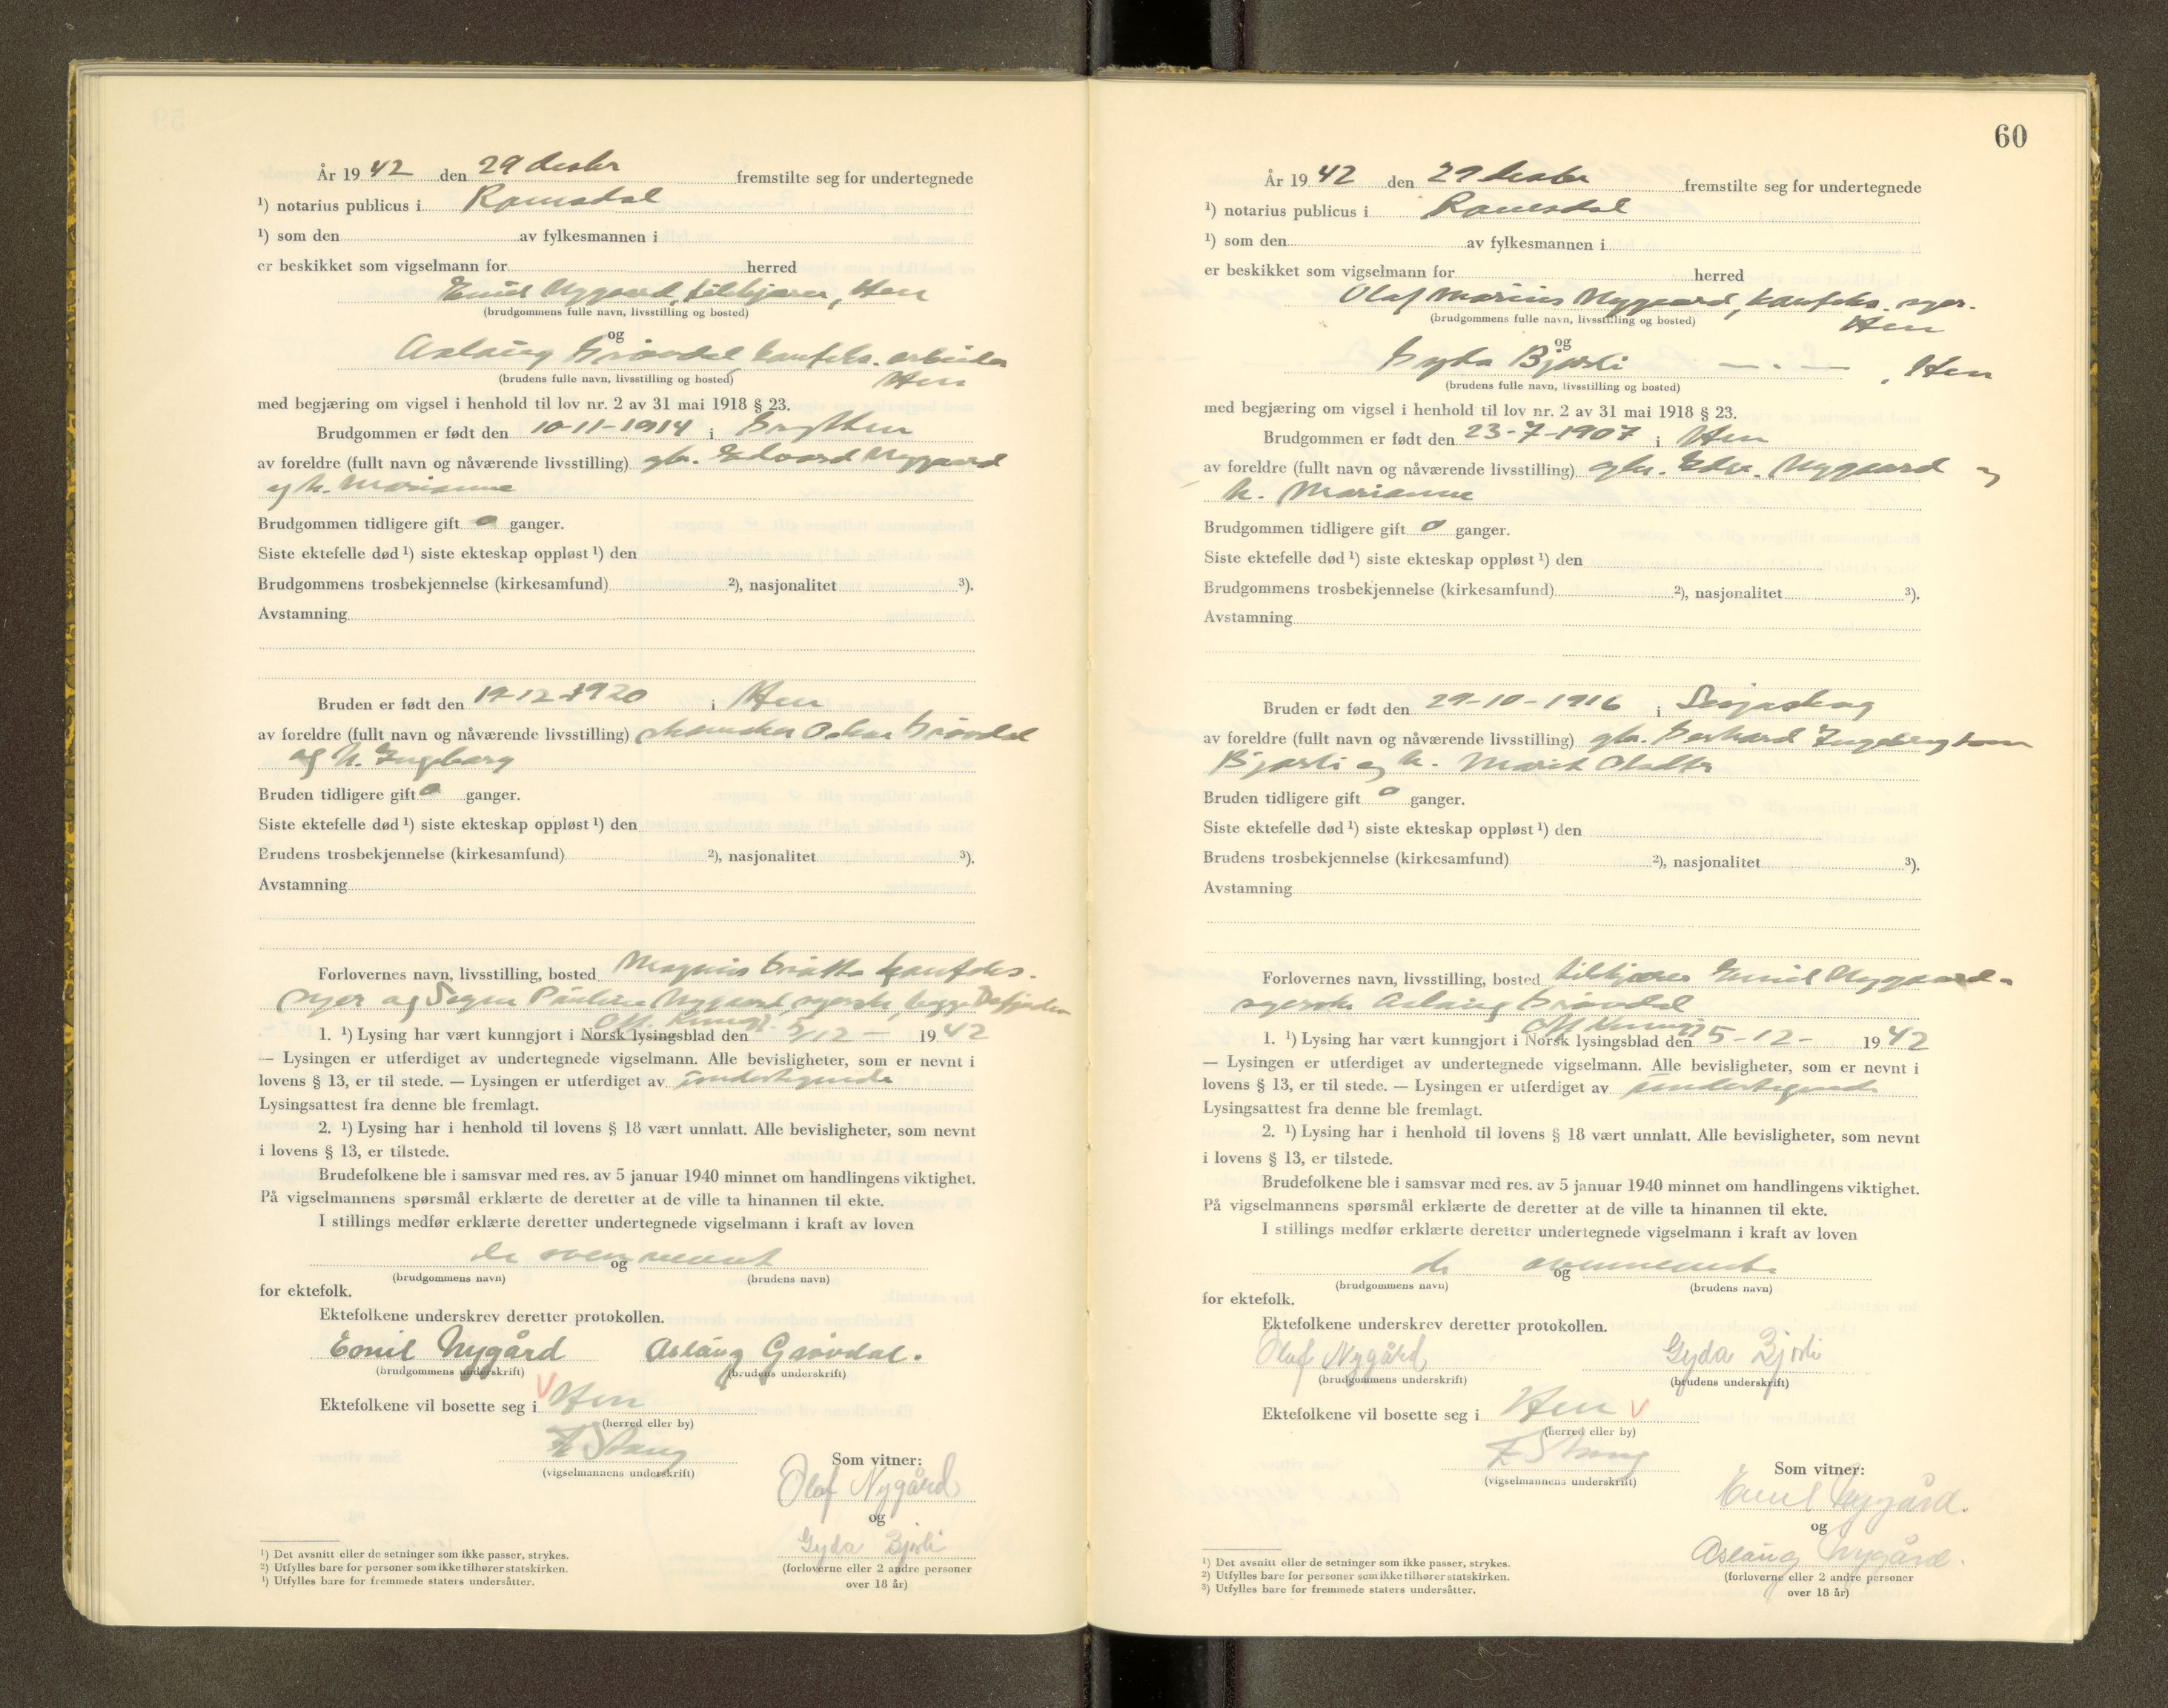 År 1942 den 29 desbr fremstilte seg for undertegnede
¹) notarius publicus i Romsdal
¹) som den av fylkesmannen i
er beskikket som vigselmann for herred
Emil Nygaard, tilskjærer, Hen
(brudgommens fulle navn, livsstilling og bosted)
og
Aslaug Grøvdal, konfeks. arbeider
Hen
(brudens fulle navn, livsstilling og bosted)
med begjæring om vigsel i henhold til lov nr. 2 av 31 mai 1918 § 23.
Brudgommen er født den 10-11-1914 i Grytten
av foreldre (fullt navn og nåværende livsstilling) gbr. Edvard Nygaard
og h. Marianne
Brudgommen tidligere gift 0 ganger.
Siste ektefelle død ¹) siste ekteskap oppløst ¹) den
Brudgommens trosbekjennelse (kirkesamfund) ²), nasjonalitet ³).
Avstamning
Bruden er født den 19-12-1920 i Hen
av foreldre (fullt navn og nåværende livsstilling) Oskar Grøvdal
og h. Ingeborg
Bruden tidligere gift 0 ganger.
Siste ektefelle død ¹) siste ekteskap oppløst ¹) den
Brudens trosbekjennelse (kirkesamfund) ²), nasjonalitet ³).
Avstamning
Forlovernes navn, livsstilling, bosted Magnus konfeks.
syer og Pauline Nygaard, syerske, begge
Off. Kunngj.
1. ¹) Lysing har vært kunngjort i Norsk lysingsblad den 5/12 - 1942
— Lysingen er utferdiget av undertegnede vigselmann. Alle bevisligheter, som er nevnt i
lovens § 13, er til stede. — Lysingen er utferdiget av undertegnede
Lysingsattest fra denne ble fremlagt.
2. ¹) Lysing har i henhold til lovens § 18 vært unnlatt. Alle bevisligheter, som nevnt
i lovens § 13, er tilstede.
Brudefolkene ble i samsvar med res. av 5 januar 1940 minnet om handlingens viktighet.
På vigselmannens spørsmål erklærte de deretter at de ville ta hinannen til ekte.
I stillings medfør erklærte deretter undertegnede vigselmann i kraft av loven
de ovennevnt
og
(brudgommens navn) (brudens navn)
for ektefolk.
Ektefolkene underskrev deretter protokollen.
Emil Nygård Aslaug Grøvdal.
(brudgommens underskrift) (brudens underskrift)
Ektefolkene vil bosette seg i Hen
(herred eller by)
Stang
(vigselmannens underskrift)
Som vitner:
Olaf Nygård
og
Gyda Bjorli
(forloverne eller 2 andre personer
over 18 år)
¹) Det avsnitt eller de setninger som ikke passer, strykes.
²) Utfylles bare for personer som ikke tilhører statskirken.
³) Utfylles bare for fremmede staters undersåtter.
60
År 1942 den 29 desbr fremstilte seg for undertegnede
¹) notarius publicus i Romsdal
¹) som den av fylkesmannen i
er beskikket som vigselmann for herred
Olaf Marius Nygaard, konfeks. syer.
Hen
(brudgommens fulle navn, livsstilling og bosted)
og
Gyda Bjorli — . — , Hen
(brudens fulle navn, livsstilling og bosted)
med begjæring om vigsel i henhold til lov nr. 2 av 31 mai 1918 § 23.
Brudgommen er født den 23-7-1907 i Hen
av foreldre (fullt navn og nåværende livsstilling) gbr. Edv. Nygaard og
h. Marianne
Brudgommen tidligere gift 0 ganger.
Siste ektefelle død ¹) siste ekteskap oppløst ¹) den
Brudgommens trosbekjennelse (kirkesamfund) ²), nasjonalitet ³).
Avstamning
Bruden er født den 29-10-1916 i Lesjaskog
av foreldre (fullt navn og nåværende livsstilling) gbr. Gerhard Ingebrigtsen
Bjorli og h. Marit
Bruden tidligere gift 0 ganger.
Siste ektefelle død ¹) siste ekteskap oppløst ¹) den
Brudens trosbekjennelse (kirkesamfund) ²), nasjonalitet ³).
Avstamning
Forlovernes navn, livsstilling, bosted tilskjærer Emil Nygaard
syerske Aslaug Grøvdal
Off Kunngj
1. ¹) Lysing har vært kunngjort i Norsk lysingsblad den 5-12- 1942
— Lysingen er utferdiget av undertegnede vigselmann. Alle bevisligheter, som er nevnt i
lovens § 13, er til stede. — Lysingen er utferdiget av undertegnede
Lysingsattest fra denne ble fremlagt.
2. ¹) Lysing har i henhold til lovens § 18 vært unnlatt. Alle bevisligheter, som nevnt
i lovens § 13, er tilstede.
Brudefolkene ble i samsvar med res. av 5 januar 1940 minnet om handlingens viktighet.
På vigselmannens spørsmål erklærte de deretter at de ville ta hinannen til ekte.
I stillings medfør erklærte deretter undertegnede vigselmann i kraft av loven
de ovennevnte
og
(brudgommens navn) (brudens navn)
for ektefolk.
Ektefolkene underskrev deretter protokollen.
Olaf Nygård Gyda Bjorli
(brudgommens underskrift) (brudens underskrift)
Ektefolkene vil bosette seg i Hen
(herred eller by)
Stang
(vigselmannens underskrift)
Som vitner:
Emil Nygård.
og
Aslaug Nygård.
(forloverne eller 2 andre personer
over 18 år)
¹) Det avsnitt eller de setninger som ikke passer, strykes.
²) Utfylles bare for personer som ikke tilhører statskirken.
³) Utfylles bare for fremmede staters undersåtter.